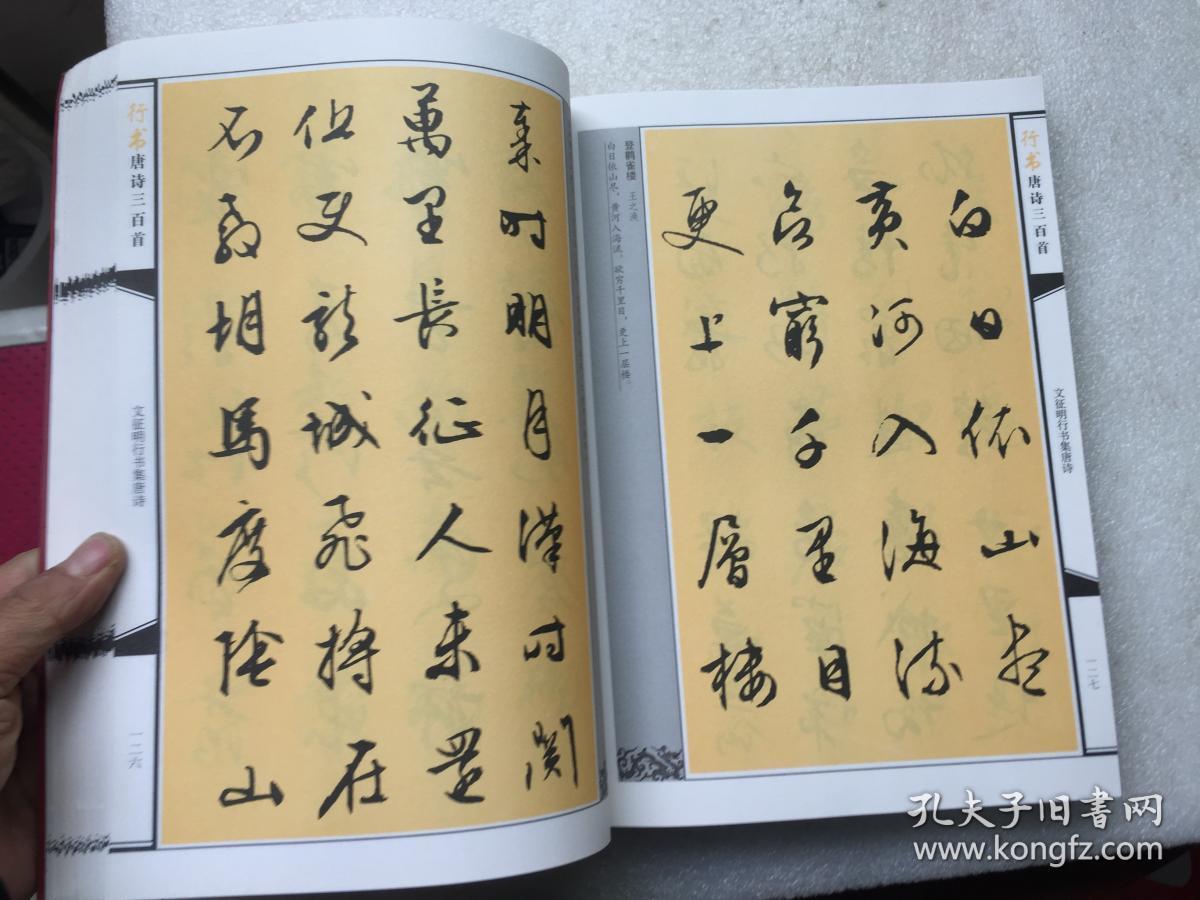 行书唐诗三百首
文征明行书集唐诗
一二六
秦时明月漢时關
萬里長征人未還
但使龍城飛將在
不教胡馬度陰山
行书唐诗三百首
文征明行书集唐诗
一二七
白日依山盡
黄河入海流
欲窮千里目
更上一層樓
登鹳雀楼 王之涣
白日依山尽，黄河入海流。欲穷千里目，更上一层楼。
孔夫子旧书网
www.kongfz.com